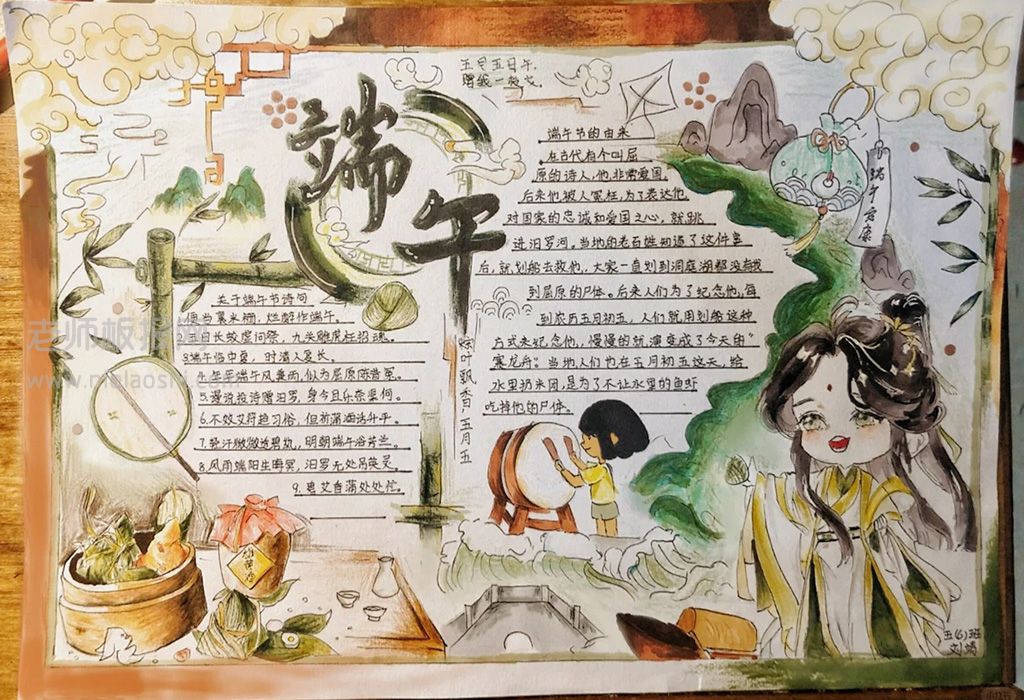 五月五日午
赠我一枝艾
端午
端午节的由来
在古代有个叫屈
原的诗人,他非常爱国,
后来他被人冤枉,为了表达他
对国家的忠诚和爱国之心,就跳
进汨罗河。当地的老百姓知道了这件事
后,就划船去救他,大家一直划到洞庭湖都没有找
到屈原的尸体。后来人们为了纪念他,每
到农历五月初五,人们就用划船这种
方式来纪念他,慢慢的就演变成了今天的"
赛龙舟"。当地人们也在五月初五这天,给
水里扔米团,是为了不让水里的鱼虾
吃掉他的尸体。
端午安康
关于端午节诗句
便当菓米粣,烂醉作端午。
2.五日长蛟虚问祭,九关雌虎枉招魂。
3.端午临中夏,时清人复长。
4.年年端午风兼雨,似为屈原陈昔冤。
5.漫说投诗赠汨罗,身今且乐奈渠何。
6.不效艾符趋习俗,但祈蒲酒话升平。
7.轻汗微微透碧纨,明朝端午浴芳兰。
8.风雨端阳生晦冥,汨罗无处吊英灵。
9.碧艾香蒲处处忙。
粽叶飘香五月五
雄黄酒
五(6)班
老师板报网